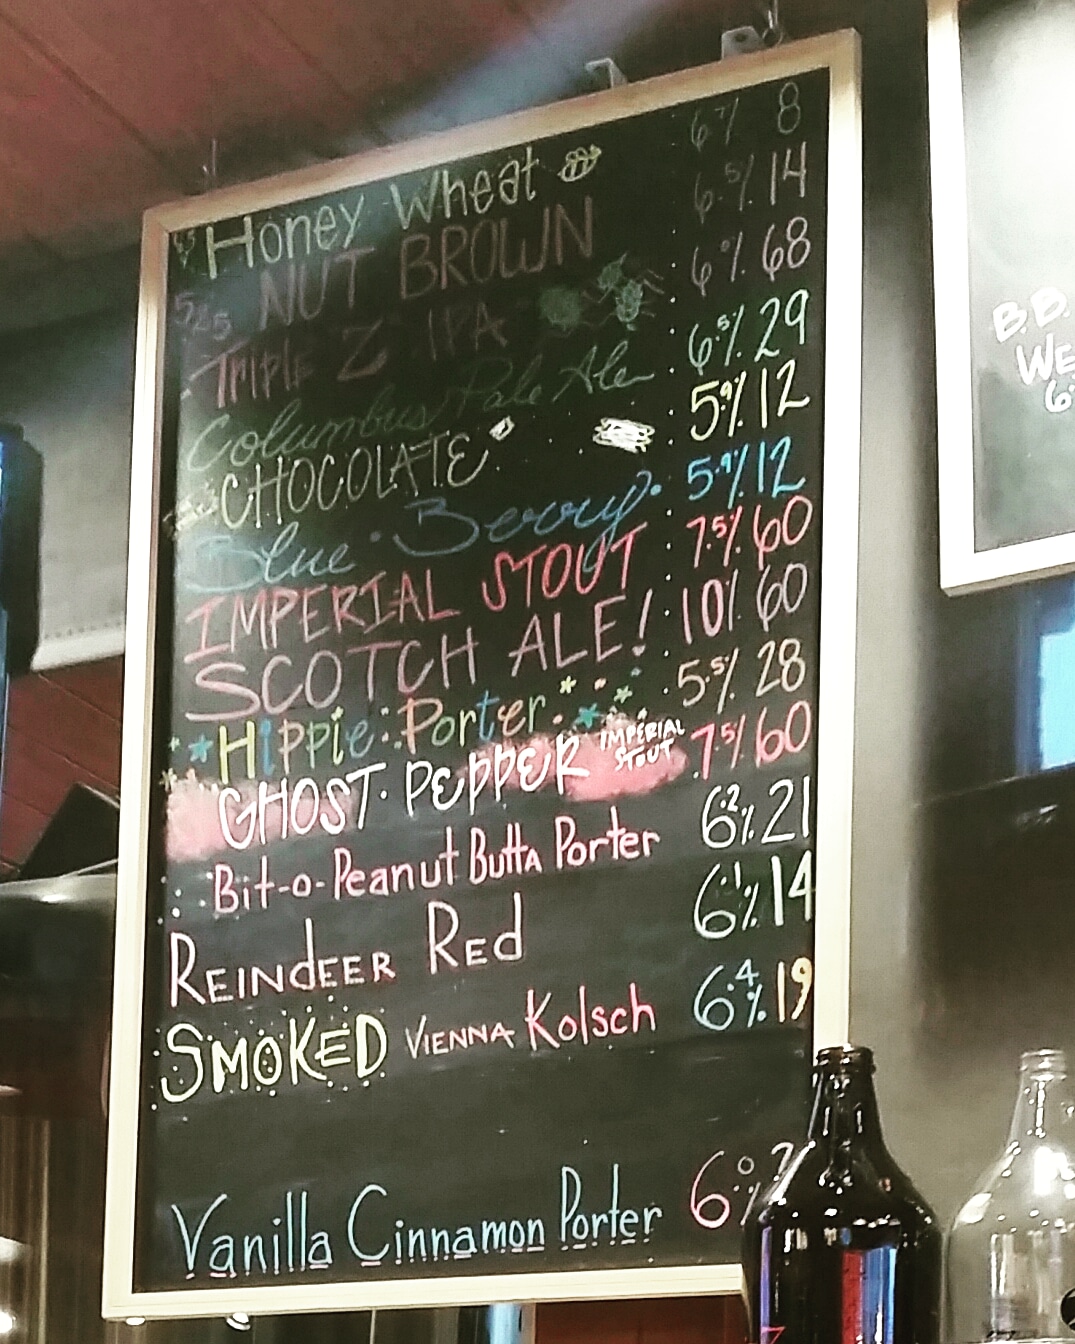 Honey Wheat 6.?% 8
525 NUT BROWN 6.5% 14
Triple Z IPA : 6.0% 68
Columbus Pale Ale : 6.5% 29
CHOCOLATE : 5.9% 12
Blue Berry : 5.9% 12
IMPERIAL STOUT : 7.5% 60
SCOTCH ALE! : 10% 60
Hippie Porter 5.5% 28
GHOST PEPPER IMPERIAL STOUT 7.5% 60
Bit-o-Peanut Butta Porter 6.2% 21
REINDEER RED 6.1% 14
SMOKED VIENNA Kolsch 6.4% 19
Vanilla Cinnamon Porter 6.0%
B.B.
WE
6